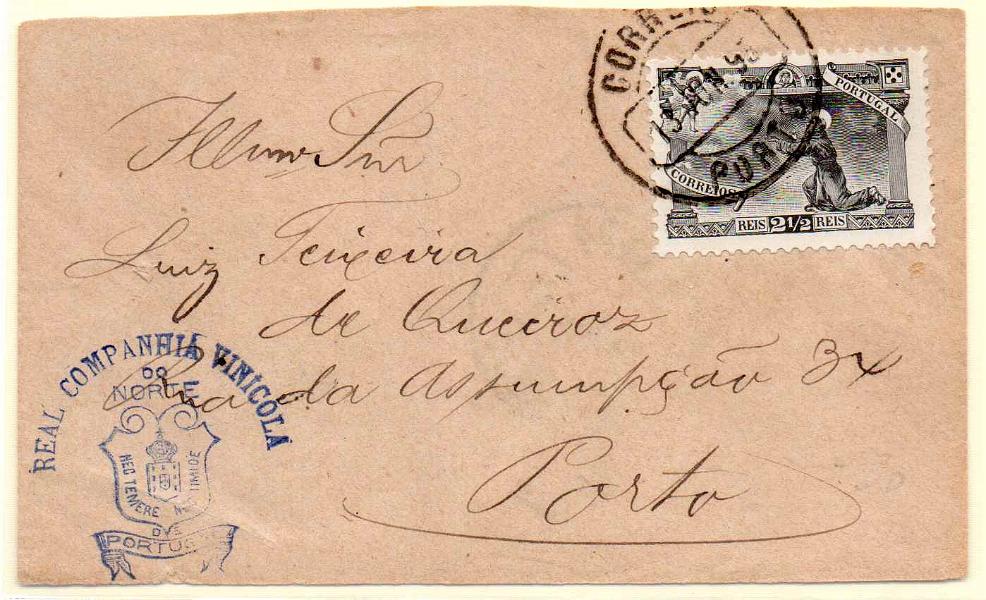 CORREIO
PORTO
PORTUGAL
CORREIOS
REIS 2 1/2 REIS
Illmo Snr
Luiz Teixeira
de Queiroz
Rua da Assumpção 34
Porto
REAL COMPANHIA VINICOLA
DO
NORTE
NEC TEMERE NEC TIMIDE
DE
PORTUGAL